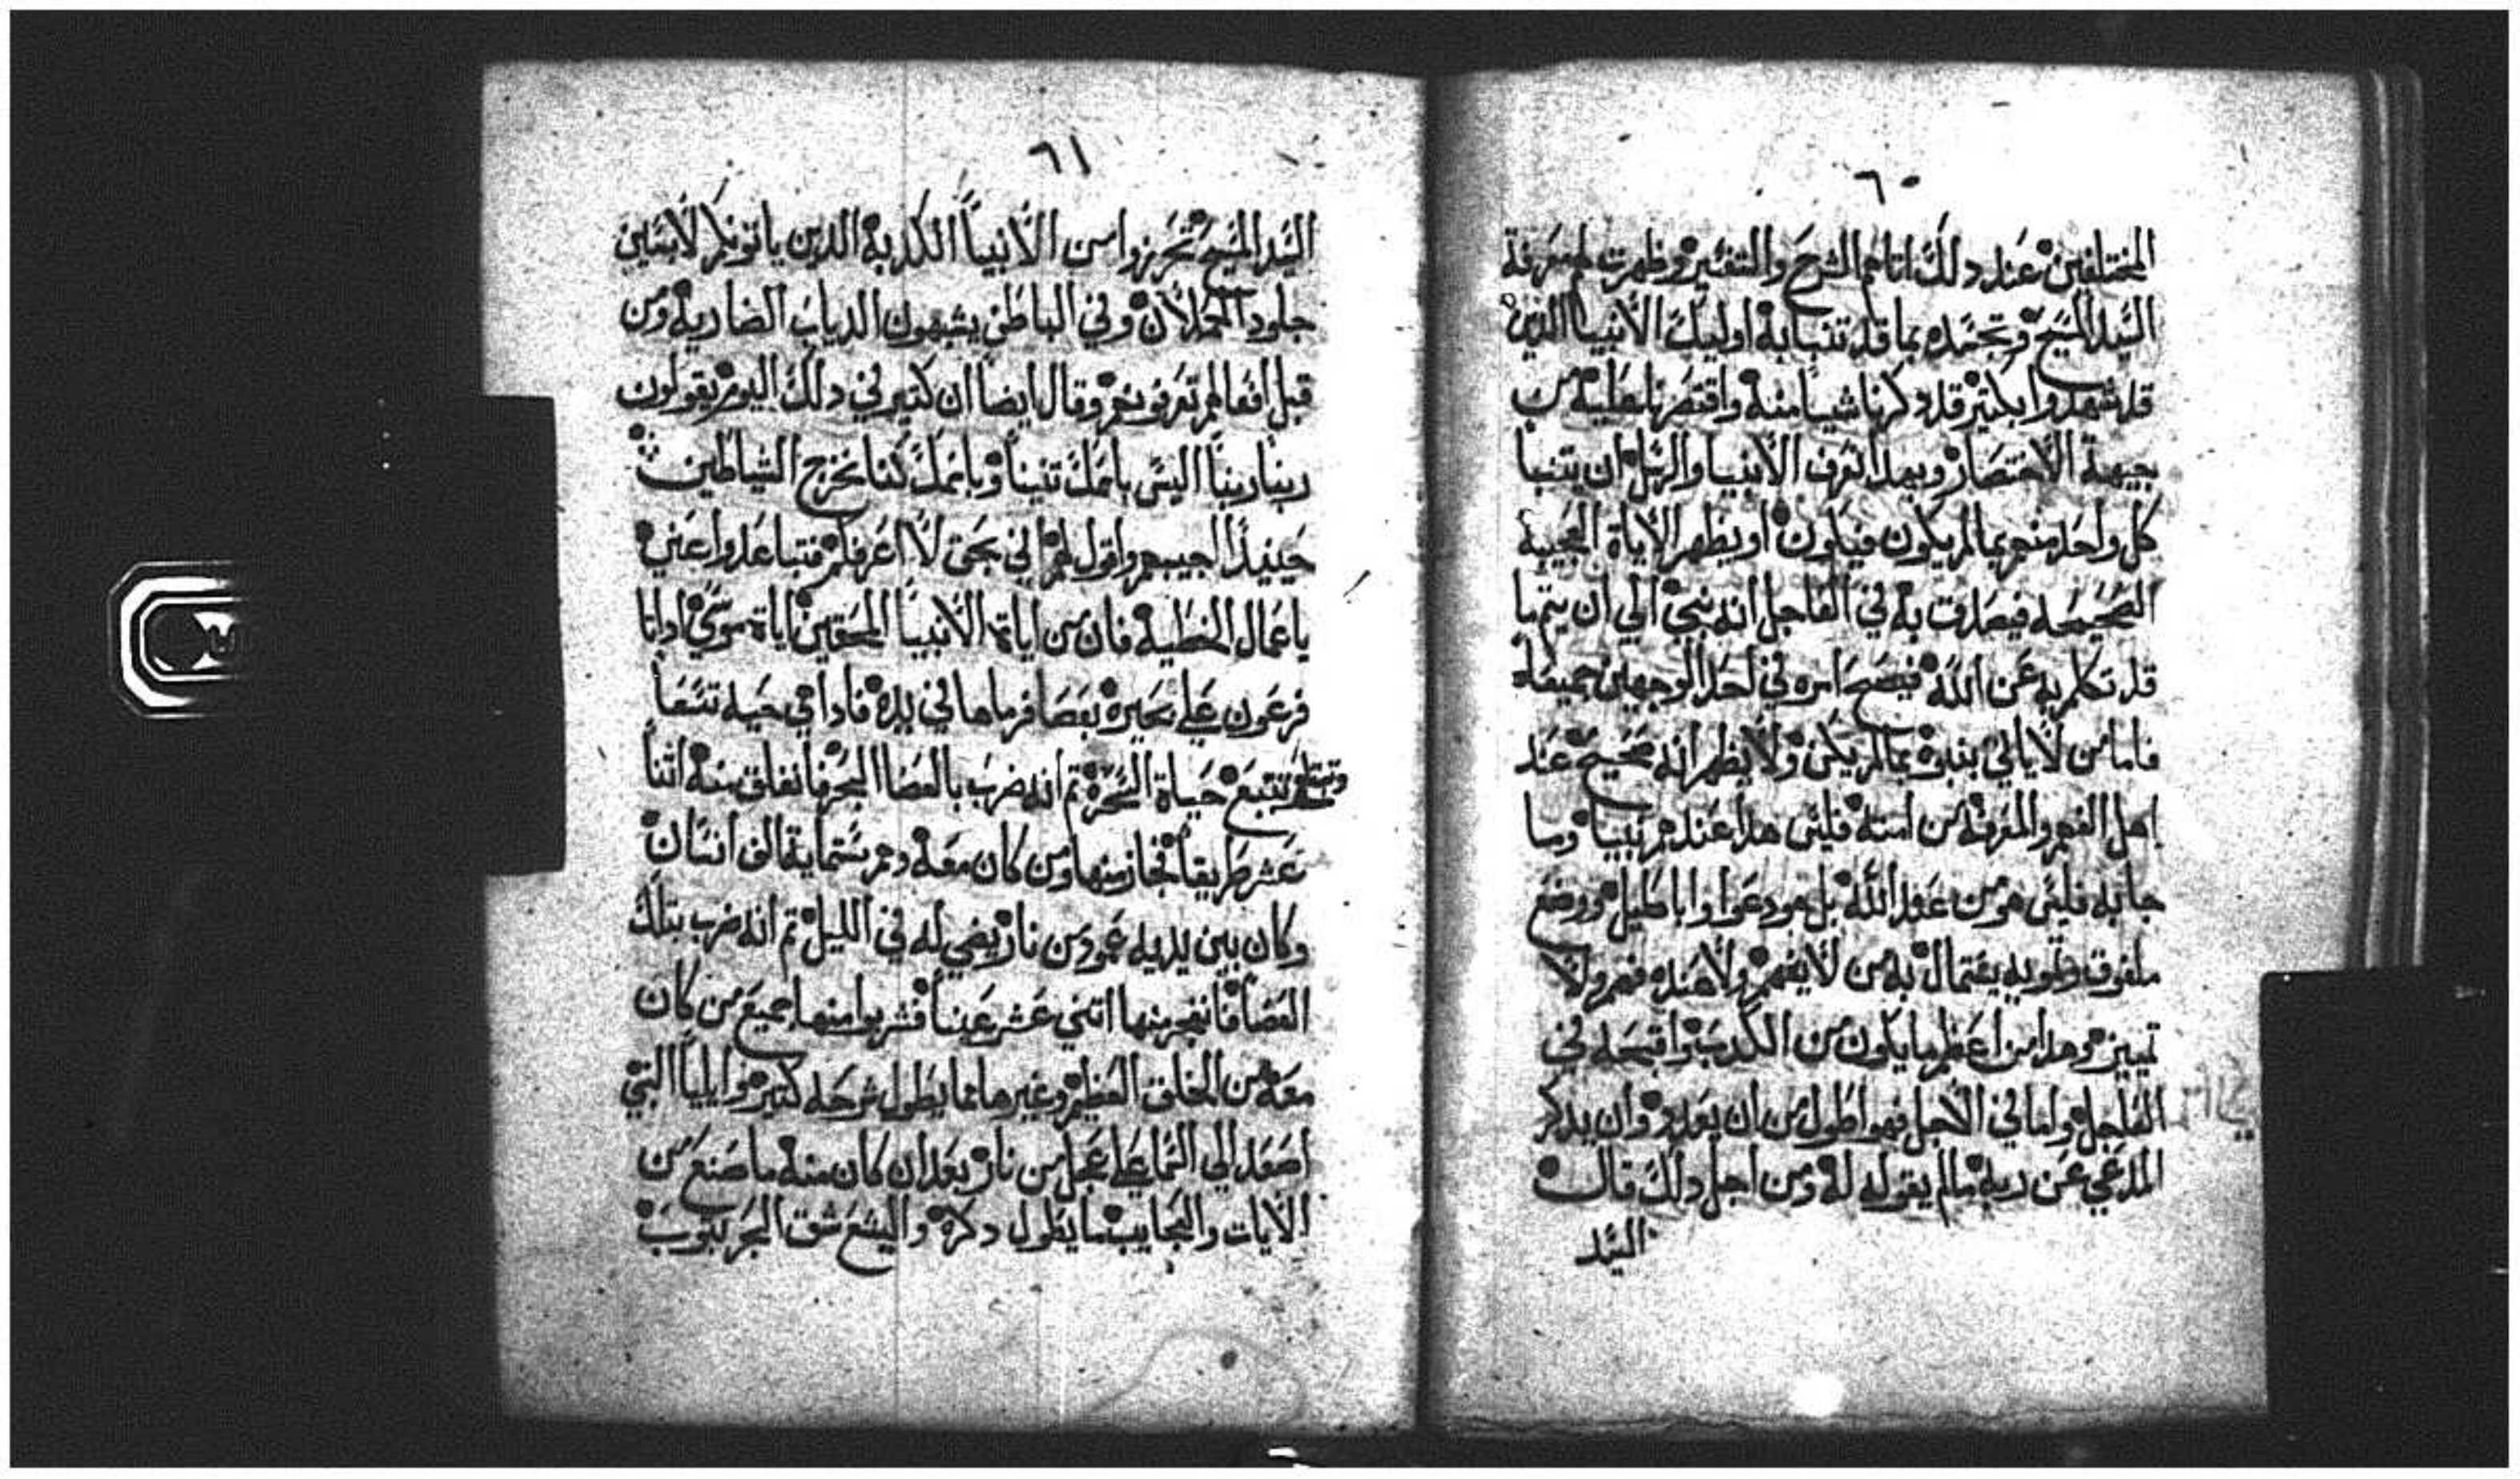 ٦٠
المختلفين عند دلك اتاهم الشرح والتفسير وظهرت لهم معرفة
السيد المسيح وتجسده بما قد تنبا به اوليك الأنبيا الدين
قد شهدوا بكتير قد دكرنا شيا منه واقتصرنا عليه من
جيهة الأختصار وبهدا تعرف الأنبيا والرسل ان يتنبا
كل واحد منهم بما لم يكون فيكون او يظهر الأياة العجيبة
الصحيحه فيصدق به في العاجل انه نبي الي ان يتم ما
قد تكلم به عن الله فيصح امره في احد الوجهين جميعاً
فاما من لا ياتي بنبوة بما لم يكن ولا يظهر انه صحيح عند
اهل الفهم والمعرفة من امته فليس هدا عندهم بنبيا وما
جا به فليس هو من عند الله بل هو دعوا واباطيل ووضع
ملفوق وتمويه يحتمال به من لا يفهم ولا عنده فهم ولا
تمييز وهدا من اعظم ما يكون من الكدب واقبحه في
العاجل واما في الأجل فهو اطول من ان يعدد وان يدكر
المدعي عن ربه مالم يقوله له ومن اجل دلك قال
السيد
٦١
السيد المسيح تحرزوا من الأنبياً الكدبة الدين ياتونكم لأبسين
جلود الحملان وفي الباطن يشبهون الدياب الضارية ومن
قبل افعالهم تعرفونهم وقال ايضاً ان كتير في دلك اليوم يقولون
ربنا ربنا اليس باسمك تنبينا وباسمك كنا نخرج الشياطين
حينيد اجيبهم واقول لهم اني بحق لا اعرفكم فتباعدوا عني
يا عمال الخطية فان من اياة الأنبيا المحقين اياة موسي اد اتا
فرعون علي بحيرة بعصا فرماها في يده فادا هي حيه تسعا
وتبتلع تتبع حياة السحرة تم انه ضرب بالعصا البحر فانفلق منه اتنا
عشر طريقاً فجاز منها ومن كان معه وهم ستماية الف انسان
وكان بين يديه عمود من نار يضي له في الليل تم انه ضرب بتلك
العصا فانفجر منها اتني عشر عيناً فشربوا منها جميع من كان
معه من الخلق العظيم وغيرها مما يطول شرحه كتير وايلياً النبي
اصعد الي السما علي عجل من نار بعد ان كان منه ما صنع من
الأيات والعجايب ما يطول دكره واليسع شق البحر بتوب